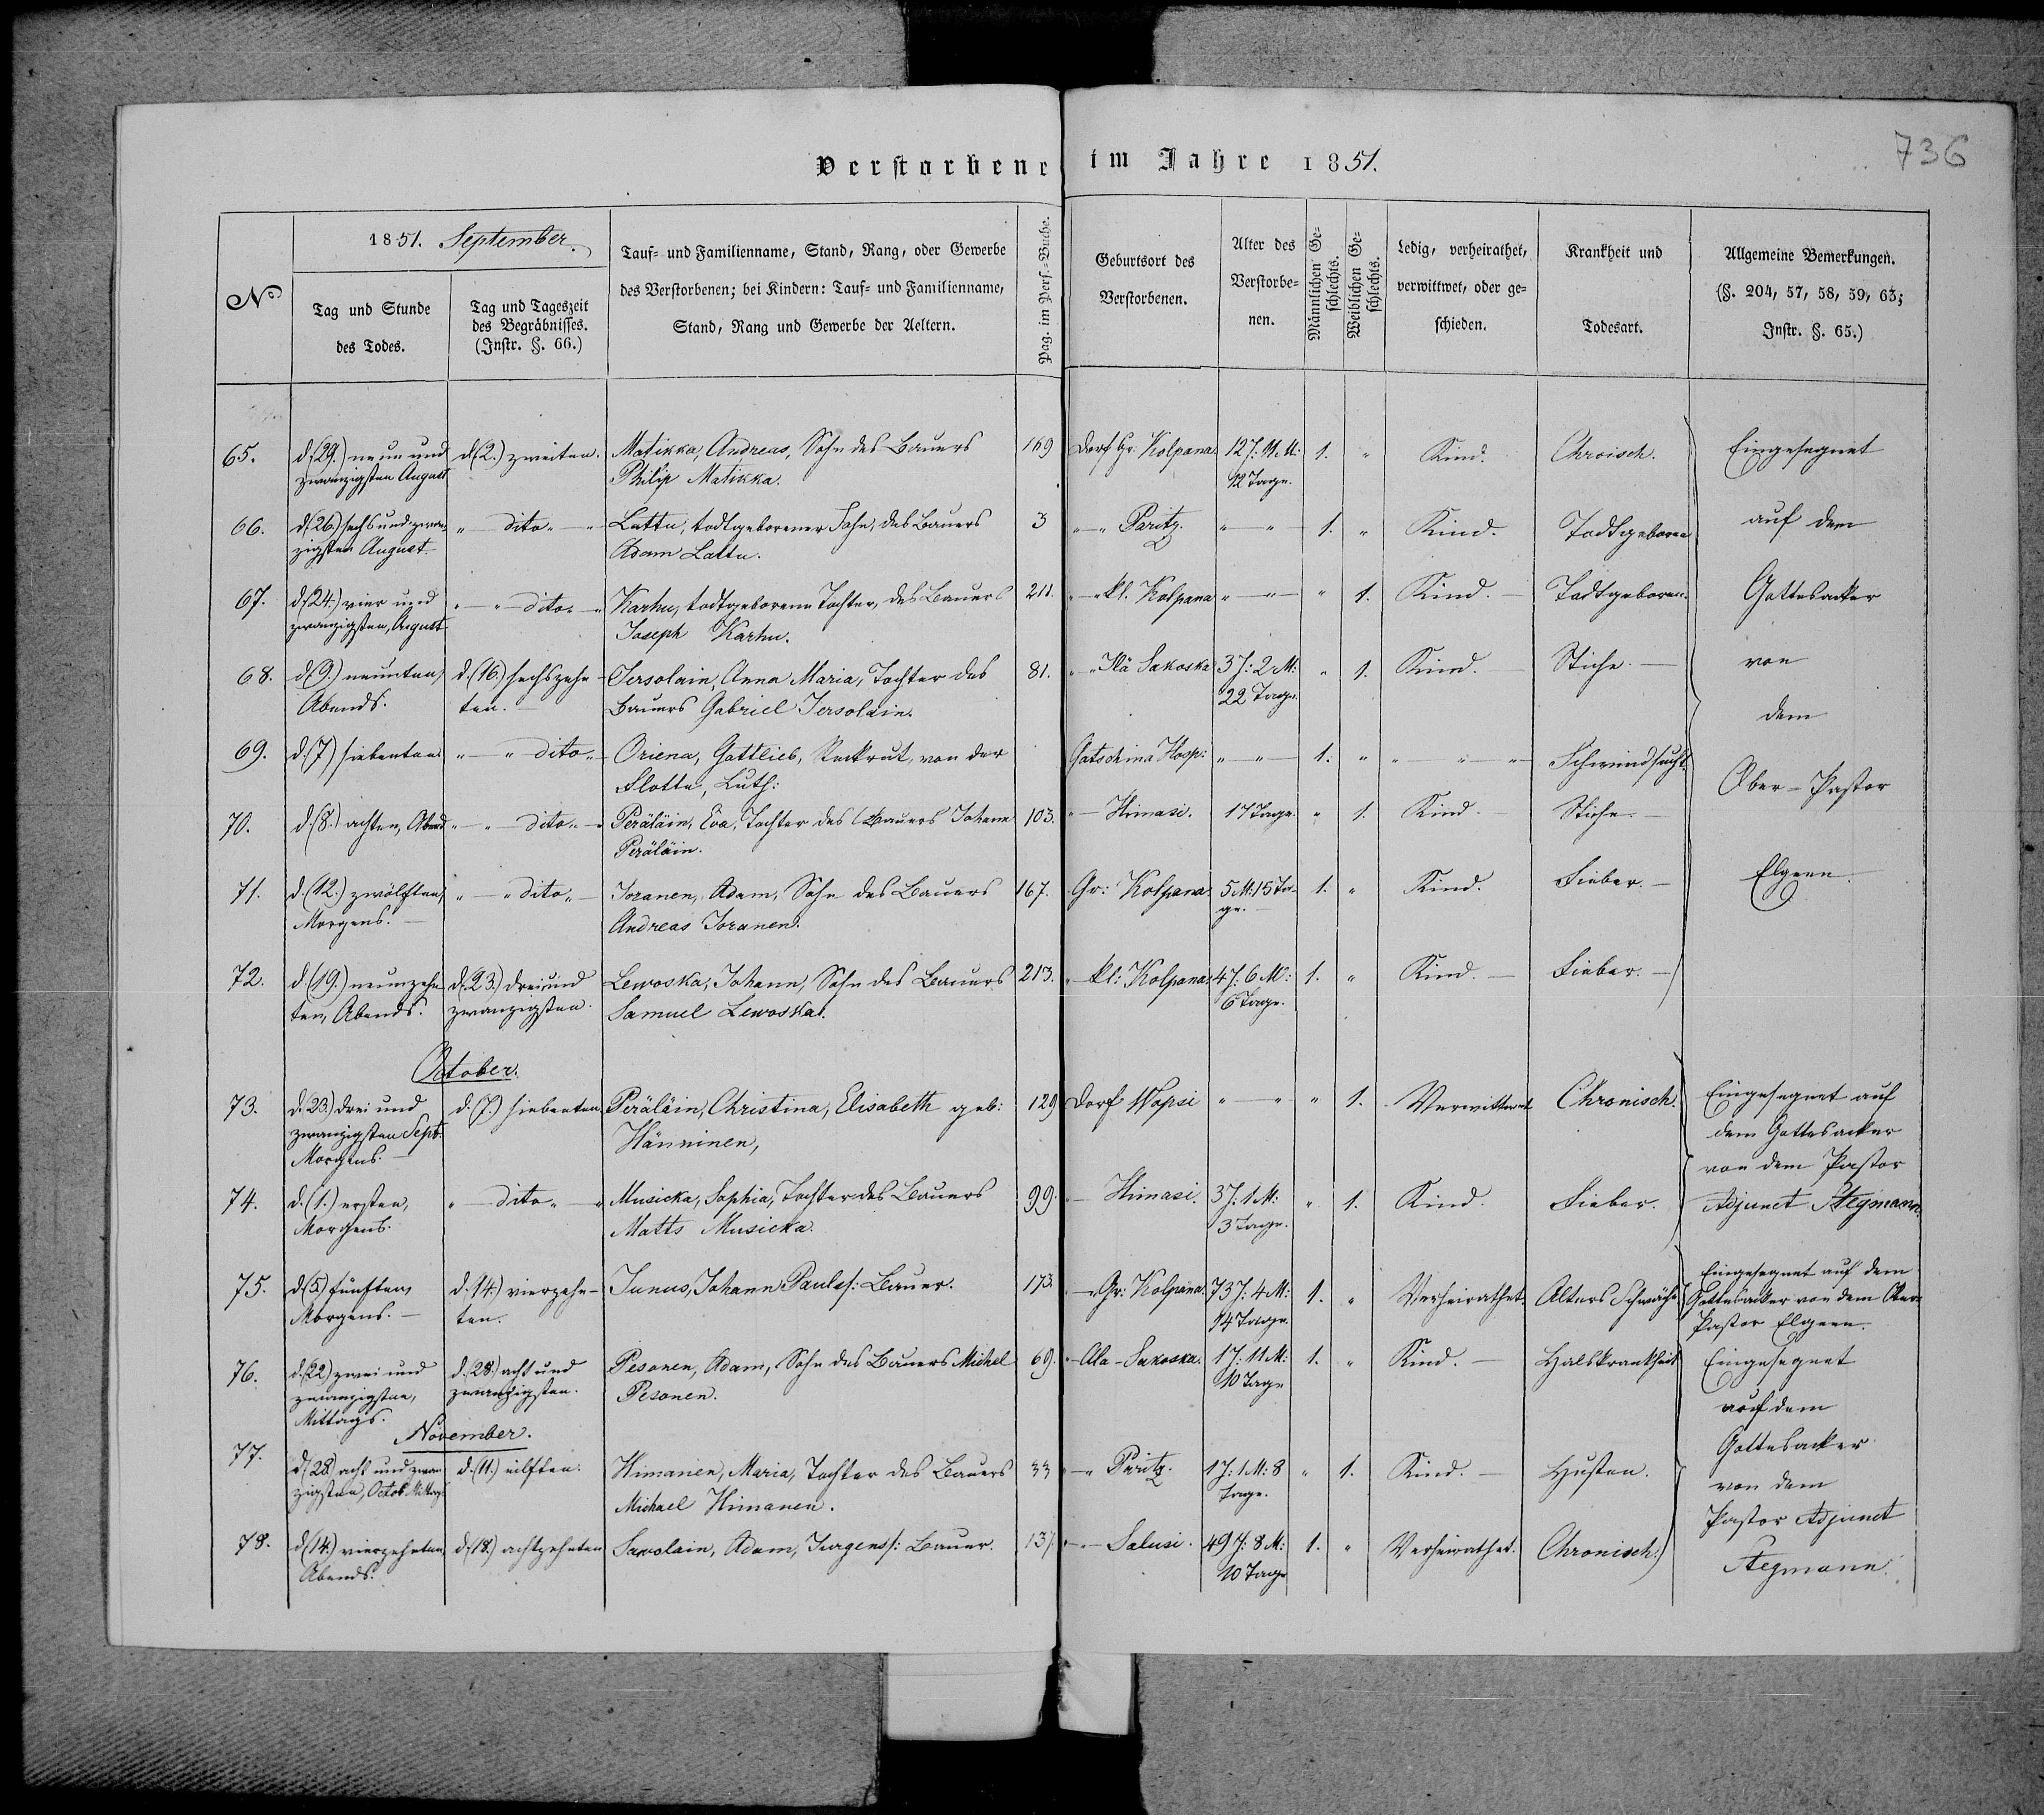 736
Verstorbene im Jahre 1851.
No
1851. September.
Tag und Stunde
des Todes.
Tag und Tageszeit
des Begräbnisses.
(Instr. §. 66.)
Tauf- und Familienname, Stand, Rang, oder Gewerbe
des Verstorbenen; bei Kindern: Tauf- und Familienname,
Stand, Rang und Gewerbe der Aeltern.
Pag. im Pers.-Buche.
Geburtsort des
Verstorbenen.
Alter des
Verstorbe-
nen.
Männlichen Ge-
schlechts.
Weiblichen Ge-
schlechts.
Ledig, verheirathet,
verwittwet, oder ge-
schieden.
Krankheit und
Todesart.
Allgemeine Bemerkungen.
(§. 204, 57, 58, 59, 63;
Instr. §. 65.)
65. d. (29.) neun und d. (2.) zweiten. Matikka, Andreas, Sohn des Bauers 169 Dorf Gr. Kolpana 12 J: 11 M: 1. " Kind. Chroisch. Eingesegnet
zwanzigsten August Philip Matikka. 12 Tage.
66. d. (26.) sechs und zwan- " dito " Lattu, todtgeborener Sohn, des Bauers 3 " " Paritz. " " 1. " Kind. Todtgeboren auf dem
zigsten August. Adam Lattu.
67. d. (24.) vier und " " dito " Karhu, todtgeborene Tochter, des Bauers 211. " kl. Kolpana " " " 1. Kind. Todtgeboren. Gottesacker
zwanzigsten, August Joseph Karhu.
68. d. (9.) neunten, d. (16.) sechszehn- Tersolain, Anna Maria, Tochter des 81. " " Ilä Sakoska 3 J: 2 M: " 1. Kind. Stiche. von
Abends. ten. Bauers Gabriel Tersolain. 22 Tage.
dem
69. d. (7) siebenten " " dito " Oriena, Gottlieb, Reckrut, von der Gatschina Hosp: " " 1. " " " " Schwindsucht.
Flotte, Luth:
Ober-Pastor
70. d. (8.) achten, Abend " " dito " Peräläin, Eva, Tochter des Bauers Johann 103. " Himasi. 17 Tage. " 1. Kind. Stiche.
Peräläin.
71. d. (12.) zwölften, " " dito " Joranen, Adam, Sohn des Bauers 167. Gr: Kolpana. 5 M: 15 Ta- 1. " Kind. Fieber. Elgeen.
Morgens. Andreas Joranen. ge.
72. d. (19.) neunzehn- d. (23.) drei und Lewoska, Johann, Sohn des Bauers 213. " kl: Kolpana. 4 J: 6 M: 1. " Kind. Fieber.
ten, Abends. zwanzigsten. Samuel Lewoska. 6 Tage.
October.
73. d. 23.) drei und d. (7.) siebenten Peräläin, Christina, Elisabeth geb: 129 Dorf Wopsi " " " 1. Verwittwet Chronisch. Eingesegnet auf
zwanzigsten Sept: Hänninen, dem Gottesacker
Morgens. von dem Pastor
74. d. (1.) ersten, " dito " " Musicka, Sophia, Tochter des Bauers 99. " Himasi. 3 J: 1 M: " 1. Kind. Fieber. Adjunct Stegmann.
Morgens. Matts Musicka. 3 Tage.
75. d. (5.) fünften, d. 14.) vierzehn- Junus, Johann Pauls s: Bauer. 173. " Gr: Kolpana. 73 J: 4 M: 1. " Verheirathet. Alters Schwäche Eingesegnet auf dem
Morgens. ten. 14 Tage. Gottesacker von dem Ober-
Pastor Elgeen.
76. d. (22) zwei und d. (28.) acht und Pesonen, Adam, Sohn des Bauers Michel 69. " Ala-Sakoska. 1 J: 11 M: 1. " Kind. Halskrankheit Eingesegnet
zwanzigsten, zwanzigsten. Pesonen. 10 Tage
Mittags. auf dem
November.
Gottesacker
77. d. (28) acht und zwan- d. (11.) eilften. Himanen, Maria, Tochter des Bauers 33 " " Paritz. 1 J: 1 M: 8 " 1. Kind. Husten. von dem
zigsten, Octob. Mittags Michael Himanen. Tage.
Pastor Adjunct
78. d. (14.) vierzehnten, d. (18.) achtzehnten Sawolain, Adam, Jurgens s: Bauer. 137. " Salusi. 49 J: 8 M: 1. " Verheirathet. Chronisch. Stegmann.
Abends. 10 Tage